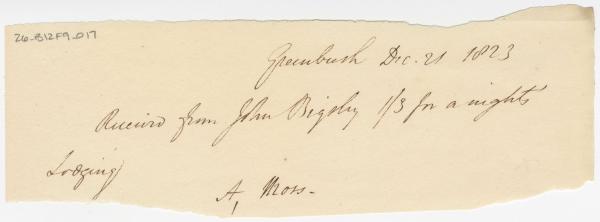 26-B12F9-017
Greenbush Dec. 21 1823
Receivd from John Bigsby 1/3 for a nights
Lodging
A, Moss-